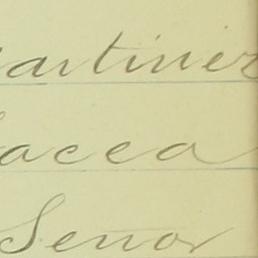 artinez
acca
Senor